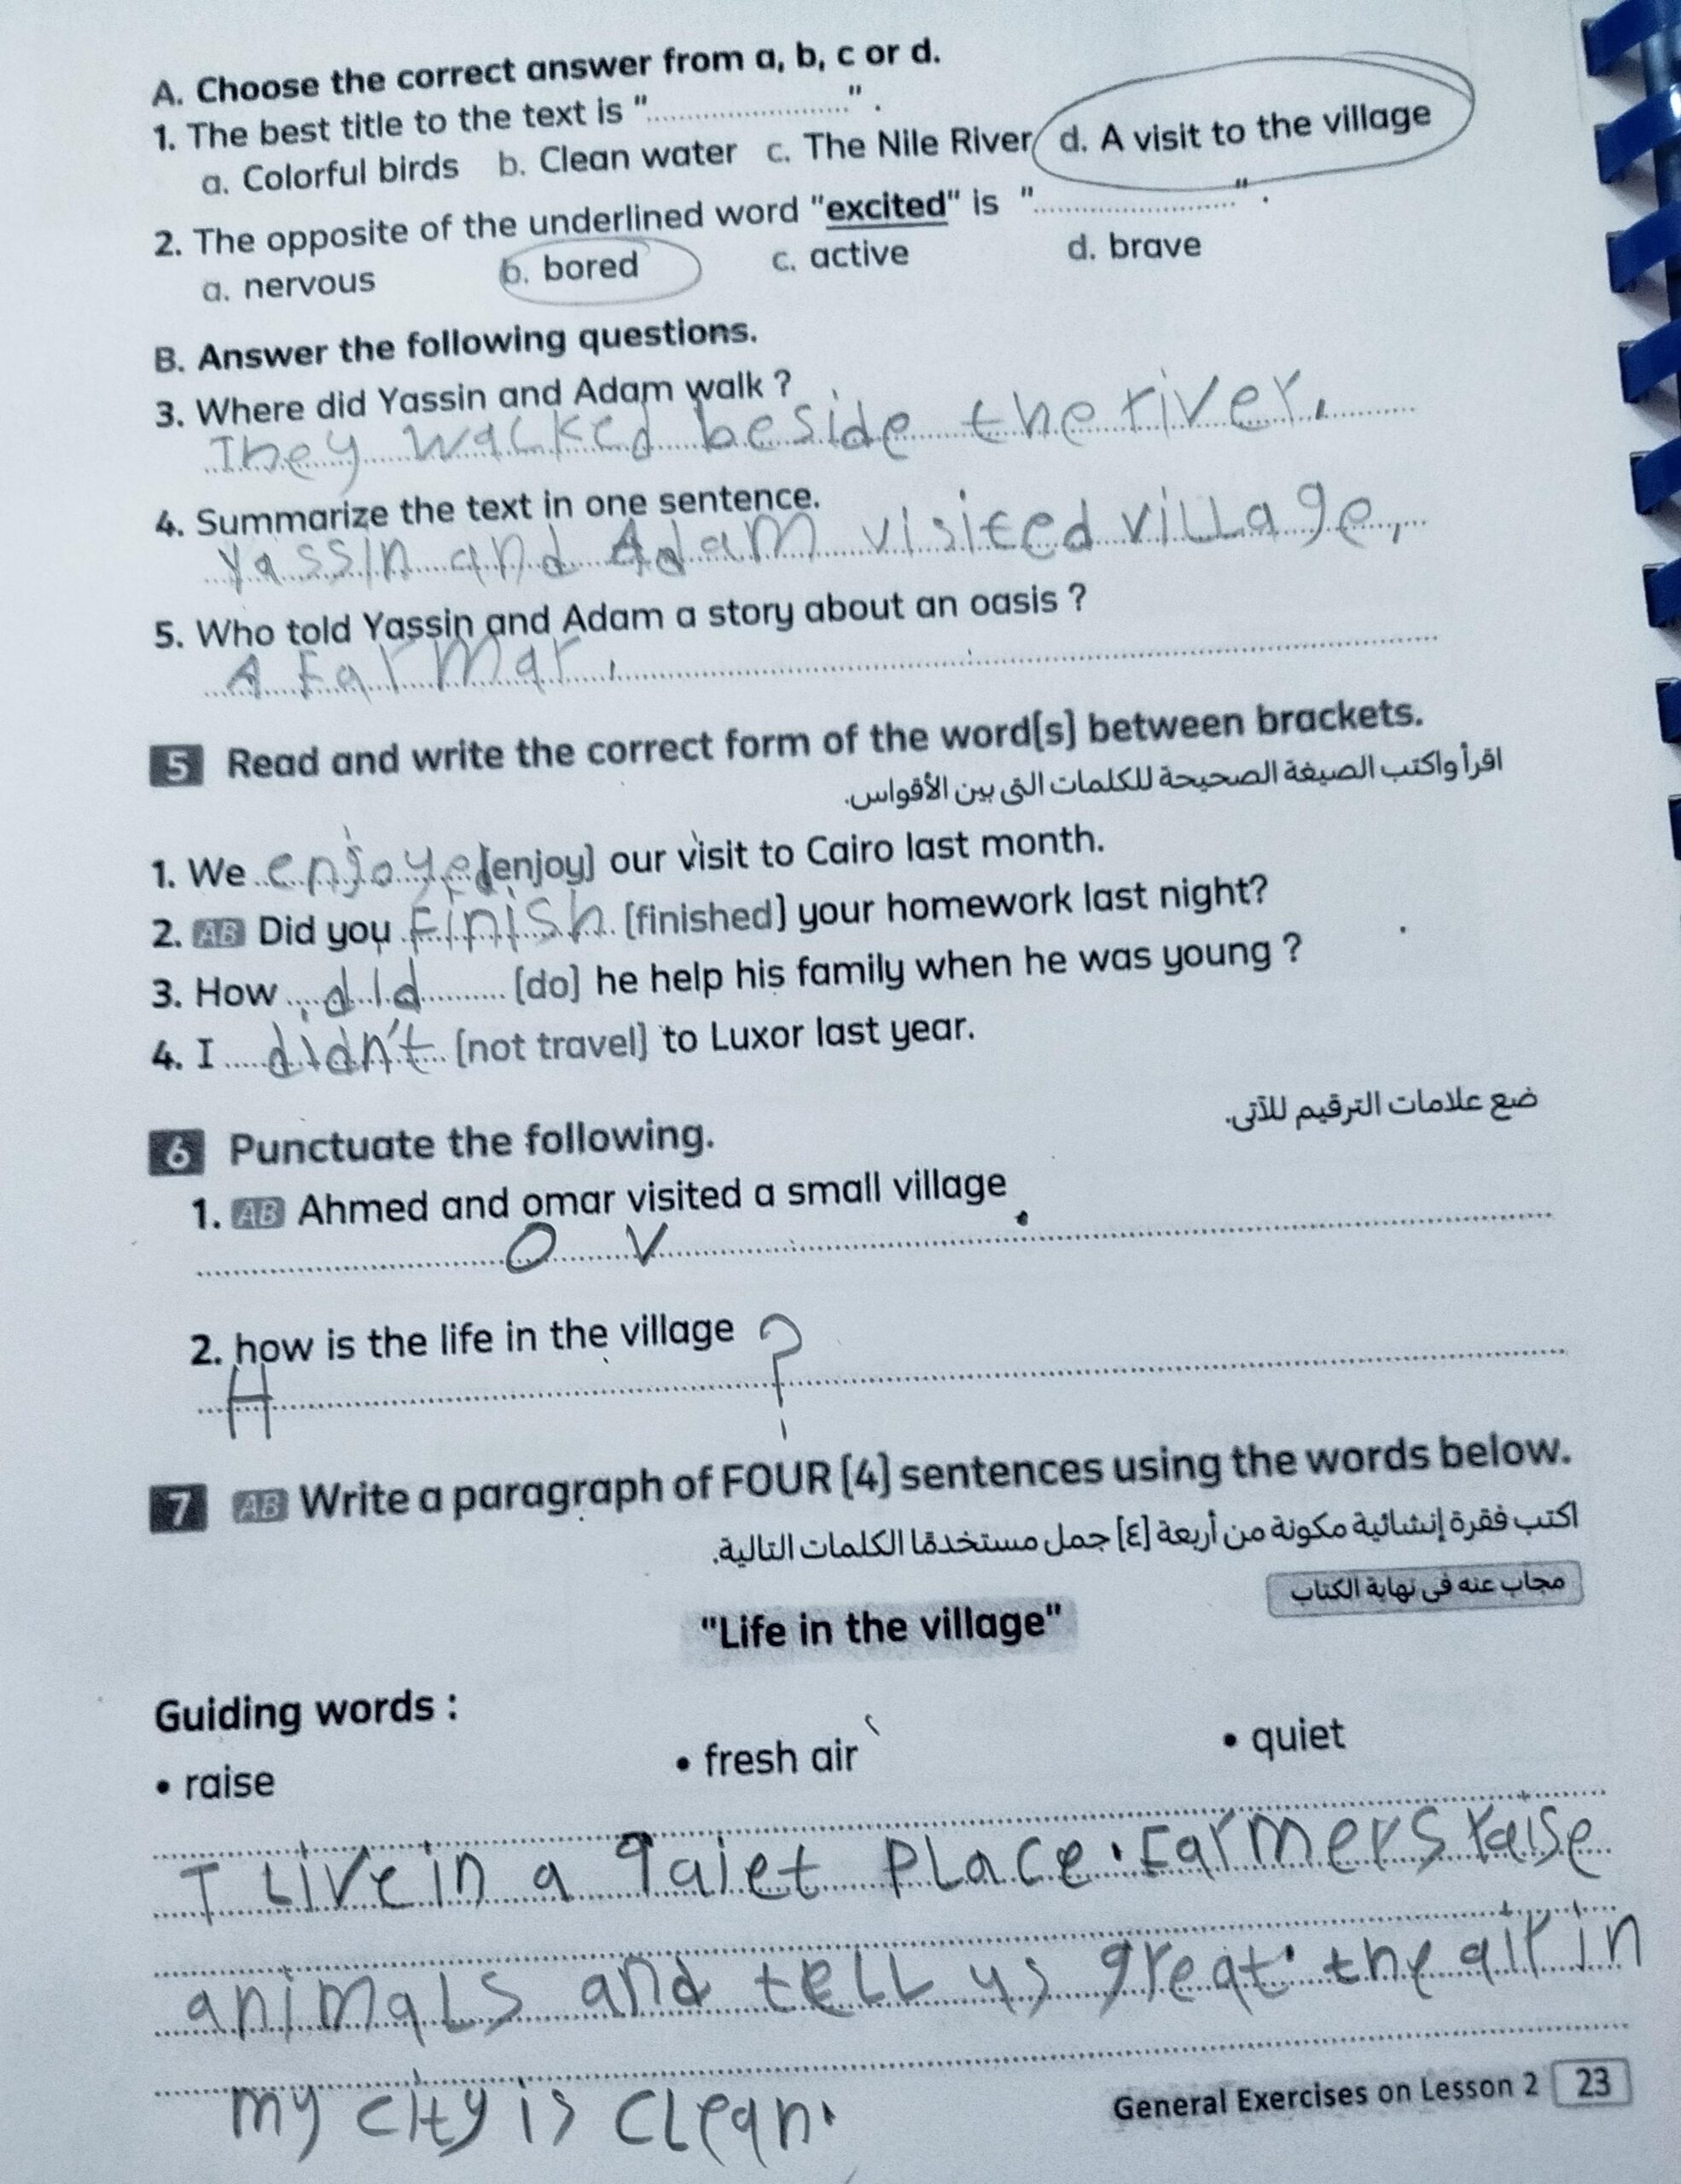 A. Choose the correct answer from a, b, c or d.
1. The best title to the text is "....................".
a. Colorful birds b. Clean water c. The Nile River d. A visit to the village
2. The opposite of the underlined word "excited" is "....................".
a. nervous b. bored c. active d. brave
B. Answer the following questions.
3. Where did Yassin and Adam walk ?
They walked beside the river.
4. Summarize the text in one sentence.
Yassin and Adam visited village,
5. Who told Yassin and Adam a story about an oasis ?
A Farmar.
5 Read and write the correct form of the word(s) between brackets.
اقرأ واكتب الصيغة الصحيحة للكلمات التى بين الأقواس.
1. We enjoyed (enjoy) our visit to Cairo last month.
2. AB Did you Finish (finished) your homework last night?
3. How did (do) he help his family when he was young ?
4. I didn't (not travel) to Luxor last year.
6 Punctuate the following.
ضع علامات الترقيم للآتى.
1. AB Ahmed and omar visited a small village
O V .
2. how is the life in the village ?
H
7 AB Write a paragraph of FOUR (4) sentences using the words below.
اكتب فقرة إنشائية مكونة من أربعة [٤] جمل مستخدمًا الكلمات التالية.
مجاب عنه فى نهاية الكتاب
"Life in the village"
Guiding words :
• raise • fresh air • quiet
I Live in a qaiet place. Farmers raise
animals and tell us great. the air in
my city is clean.
General Exercises on Lesson 2 23